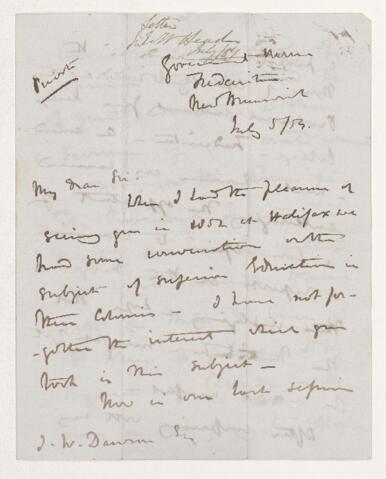 Letter
Sir E W Head
July /54
Private
Government House
Fredericton
New Brunswick
July 5/54.
My dear Sir
When I had the pleasure of
seeing you in 1852 at Halifax we
had some conversation on the
subject of superior Education in
these Colonies - I have not for-
-gotten the interest which you
took in this subject -
Now in our last session
J. W. Dawson Esq